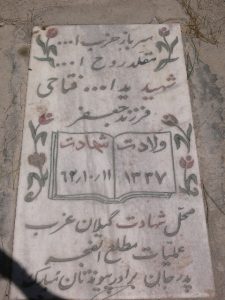 سرباز حزب ا...
مقلد روح ا...
شهید یدا... فتاحی
فرزند جعفر
ولادت شهادت
۱۳۳۷ ۶۲/۱۰/۱۱
محل شهادت گیلان غرب
عملیات مطلع الفجر
پدر جان برادر پیوندتان مبارک